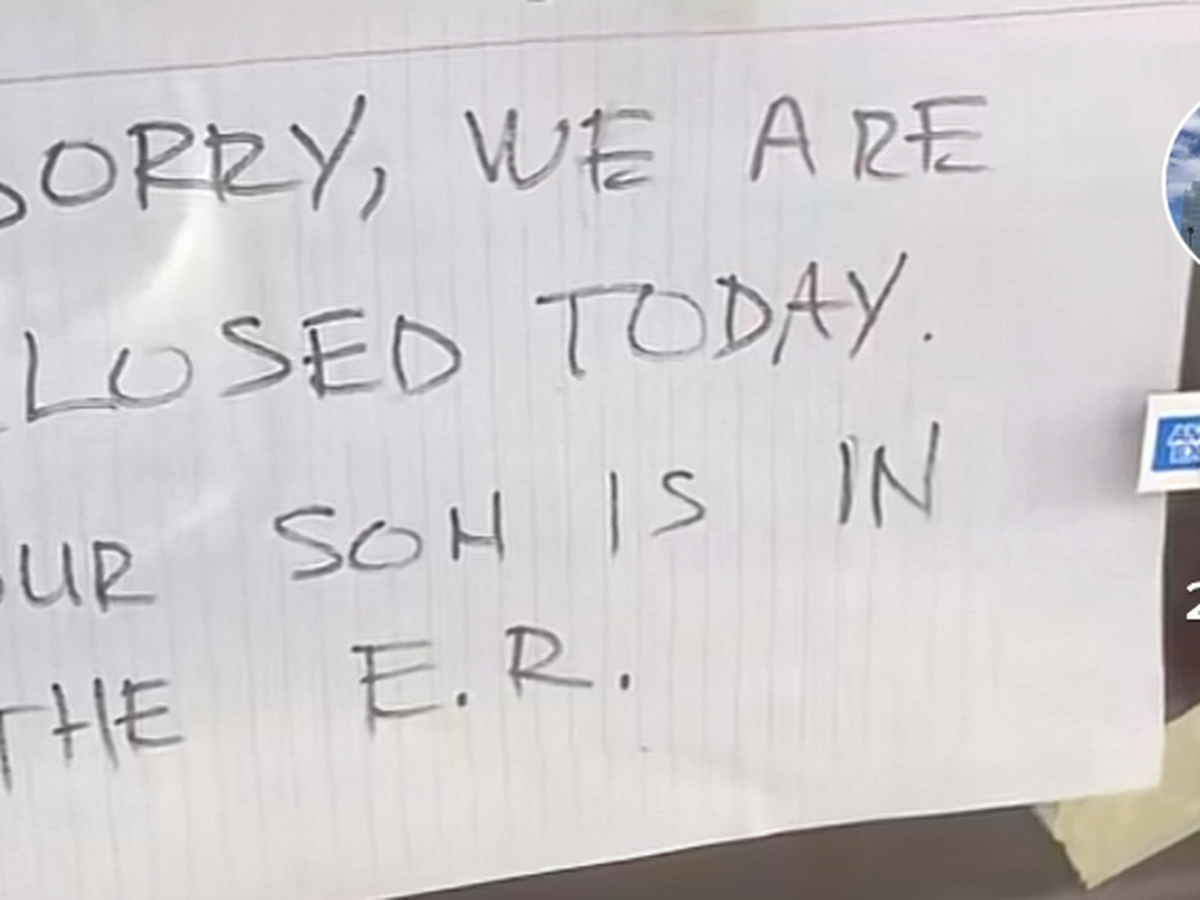 SORRY, WE ARE
CLOSED TODAY.
OUR SON IS IN
THE E.R.